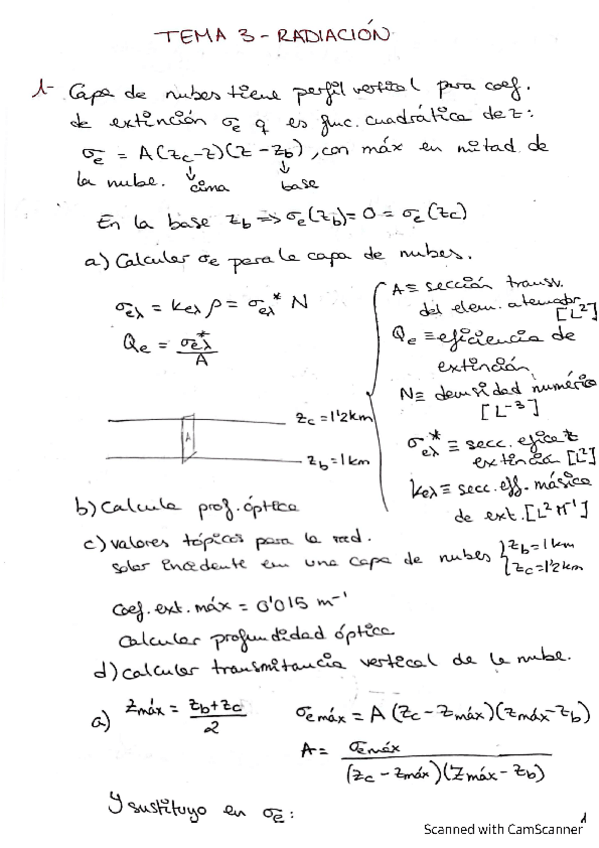 TEMA 3 - RADIACIÓN
1- Capa de nubes tiene perfil vertical para coef.
de extinción σe q es func. cuadrática de z:
σe = A(zc-z)(z-zb), con máx en mitad de
la nube. ↓ cima ↓ base
En la base zb => σe(zb)=0=σe(zc)
a) Calcular σe para la capa de nubes.
σeλ = keλ ρ = σeλ* N
Qe = σeλ*/A
A≡ sección transv.
del elem. atenuador [L²]
Qe ≡ eficiencia de
extinción
N≡ densidad numérica
[L⁻³]
σeλ* ≡ secc. eficaz
extinción [L²]
keλ≡ secc. eff. másica
de ext. [L²M⁻¹]
zc = 1'2km
A
zb = 1km
b) Calcula prof. óptica
c) valores típicos para la rad.
solar incidente en una capa de nubes { zb=1km
zc=1'2km
coef. ext. máx = 0'015 m⁻¹
Calcular profundidad óptica
d) calcular transmitancia vertical de la nube.
a) zmáx = zb+zc/2 σemáx = A(zc-zmáx)(zmáx-zb)
A= σemáx/(zc-zmáx)(zmáx-zb)
Y sustituyo en σe:
1
Scanned with CamScanner